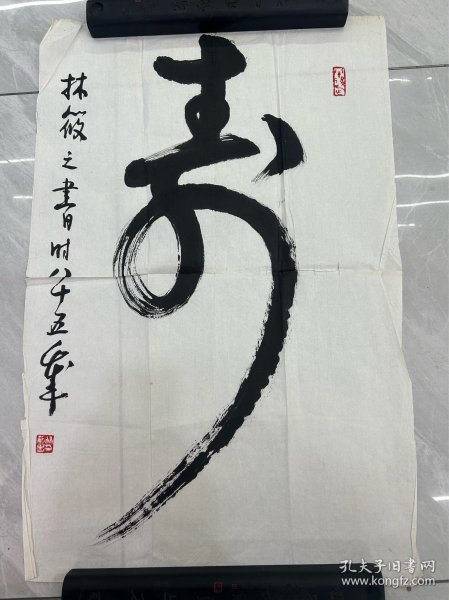 寿
林筱之书时八十五岁
孔夫子旧书网
www.kongfz.com